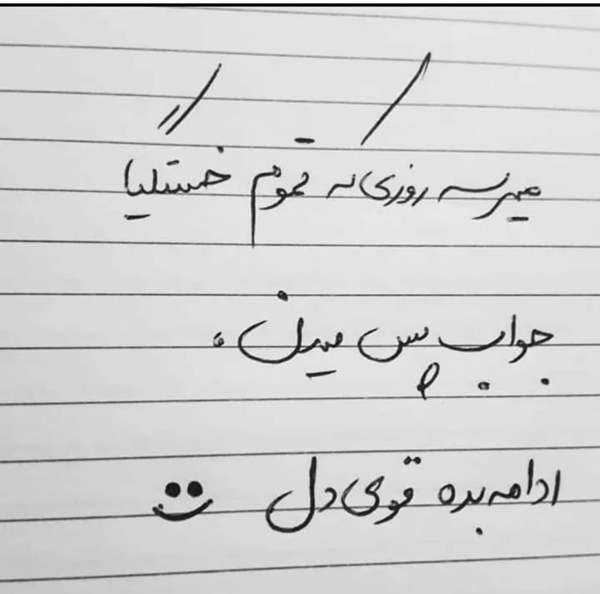 میرسه روزی که تموم خستگیا
جواب پس میدن،
ادامه بده قوی دل